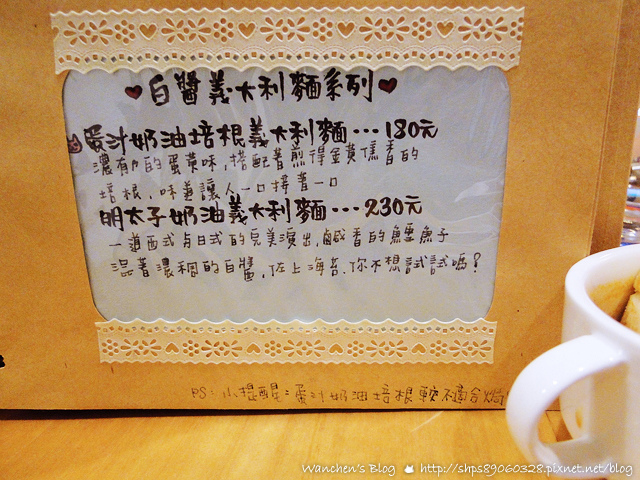 白醬義大利麵系列
蛋汁奶油培根義大利麵…180元
濃郁的蛋黃味,搭配著煎得金黃焦香的
培根,味道讓人一口接著一口
明太子奶油義大利麵…230元
一道西式与日式的完美演出,鹹香的鱈魚子
混著濃稠的白醬,佐上海苔.你不想試試嗎?
PS:小提醒:蛋汁奶油培根較不適合焗
Wanchen's Blog http://shps89060328.pixnet.net/blog